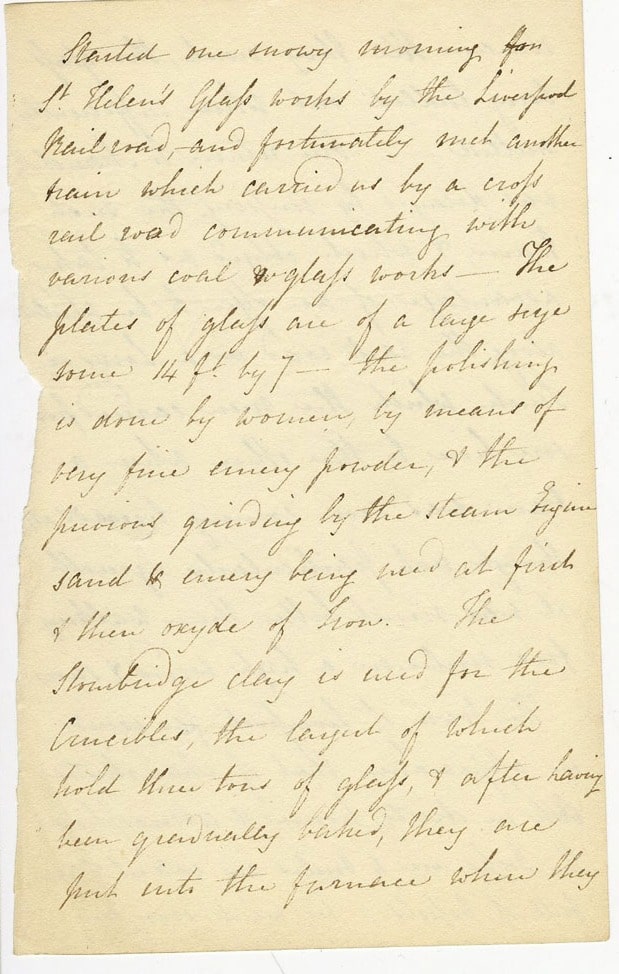 Started one snowy morning for
St. Helen's Glass works by the Liverpool
Rail road,-and fortunately met another
train which carried us by a cross
rail road communicating with
various coal & glass works — The
plates of glass are of a large size
some 14 ft. by 7 — the polishing
is done by women, by means of
very fine emery powder, & the
previous grinding by the steam Engine
sand & emery being used at first
& then oxyde of Iron. The
Stourbridge clay is used for the
Crucibles, the largest of which
hold three tons of glass, & after having
been gradually baked, they are
put into the furnace where they